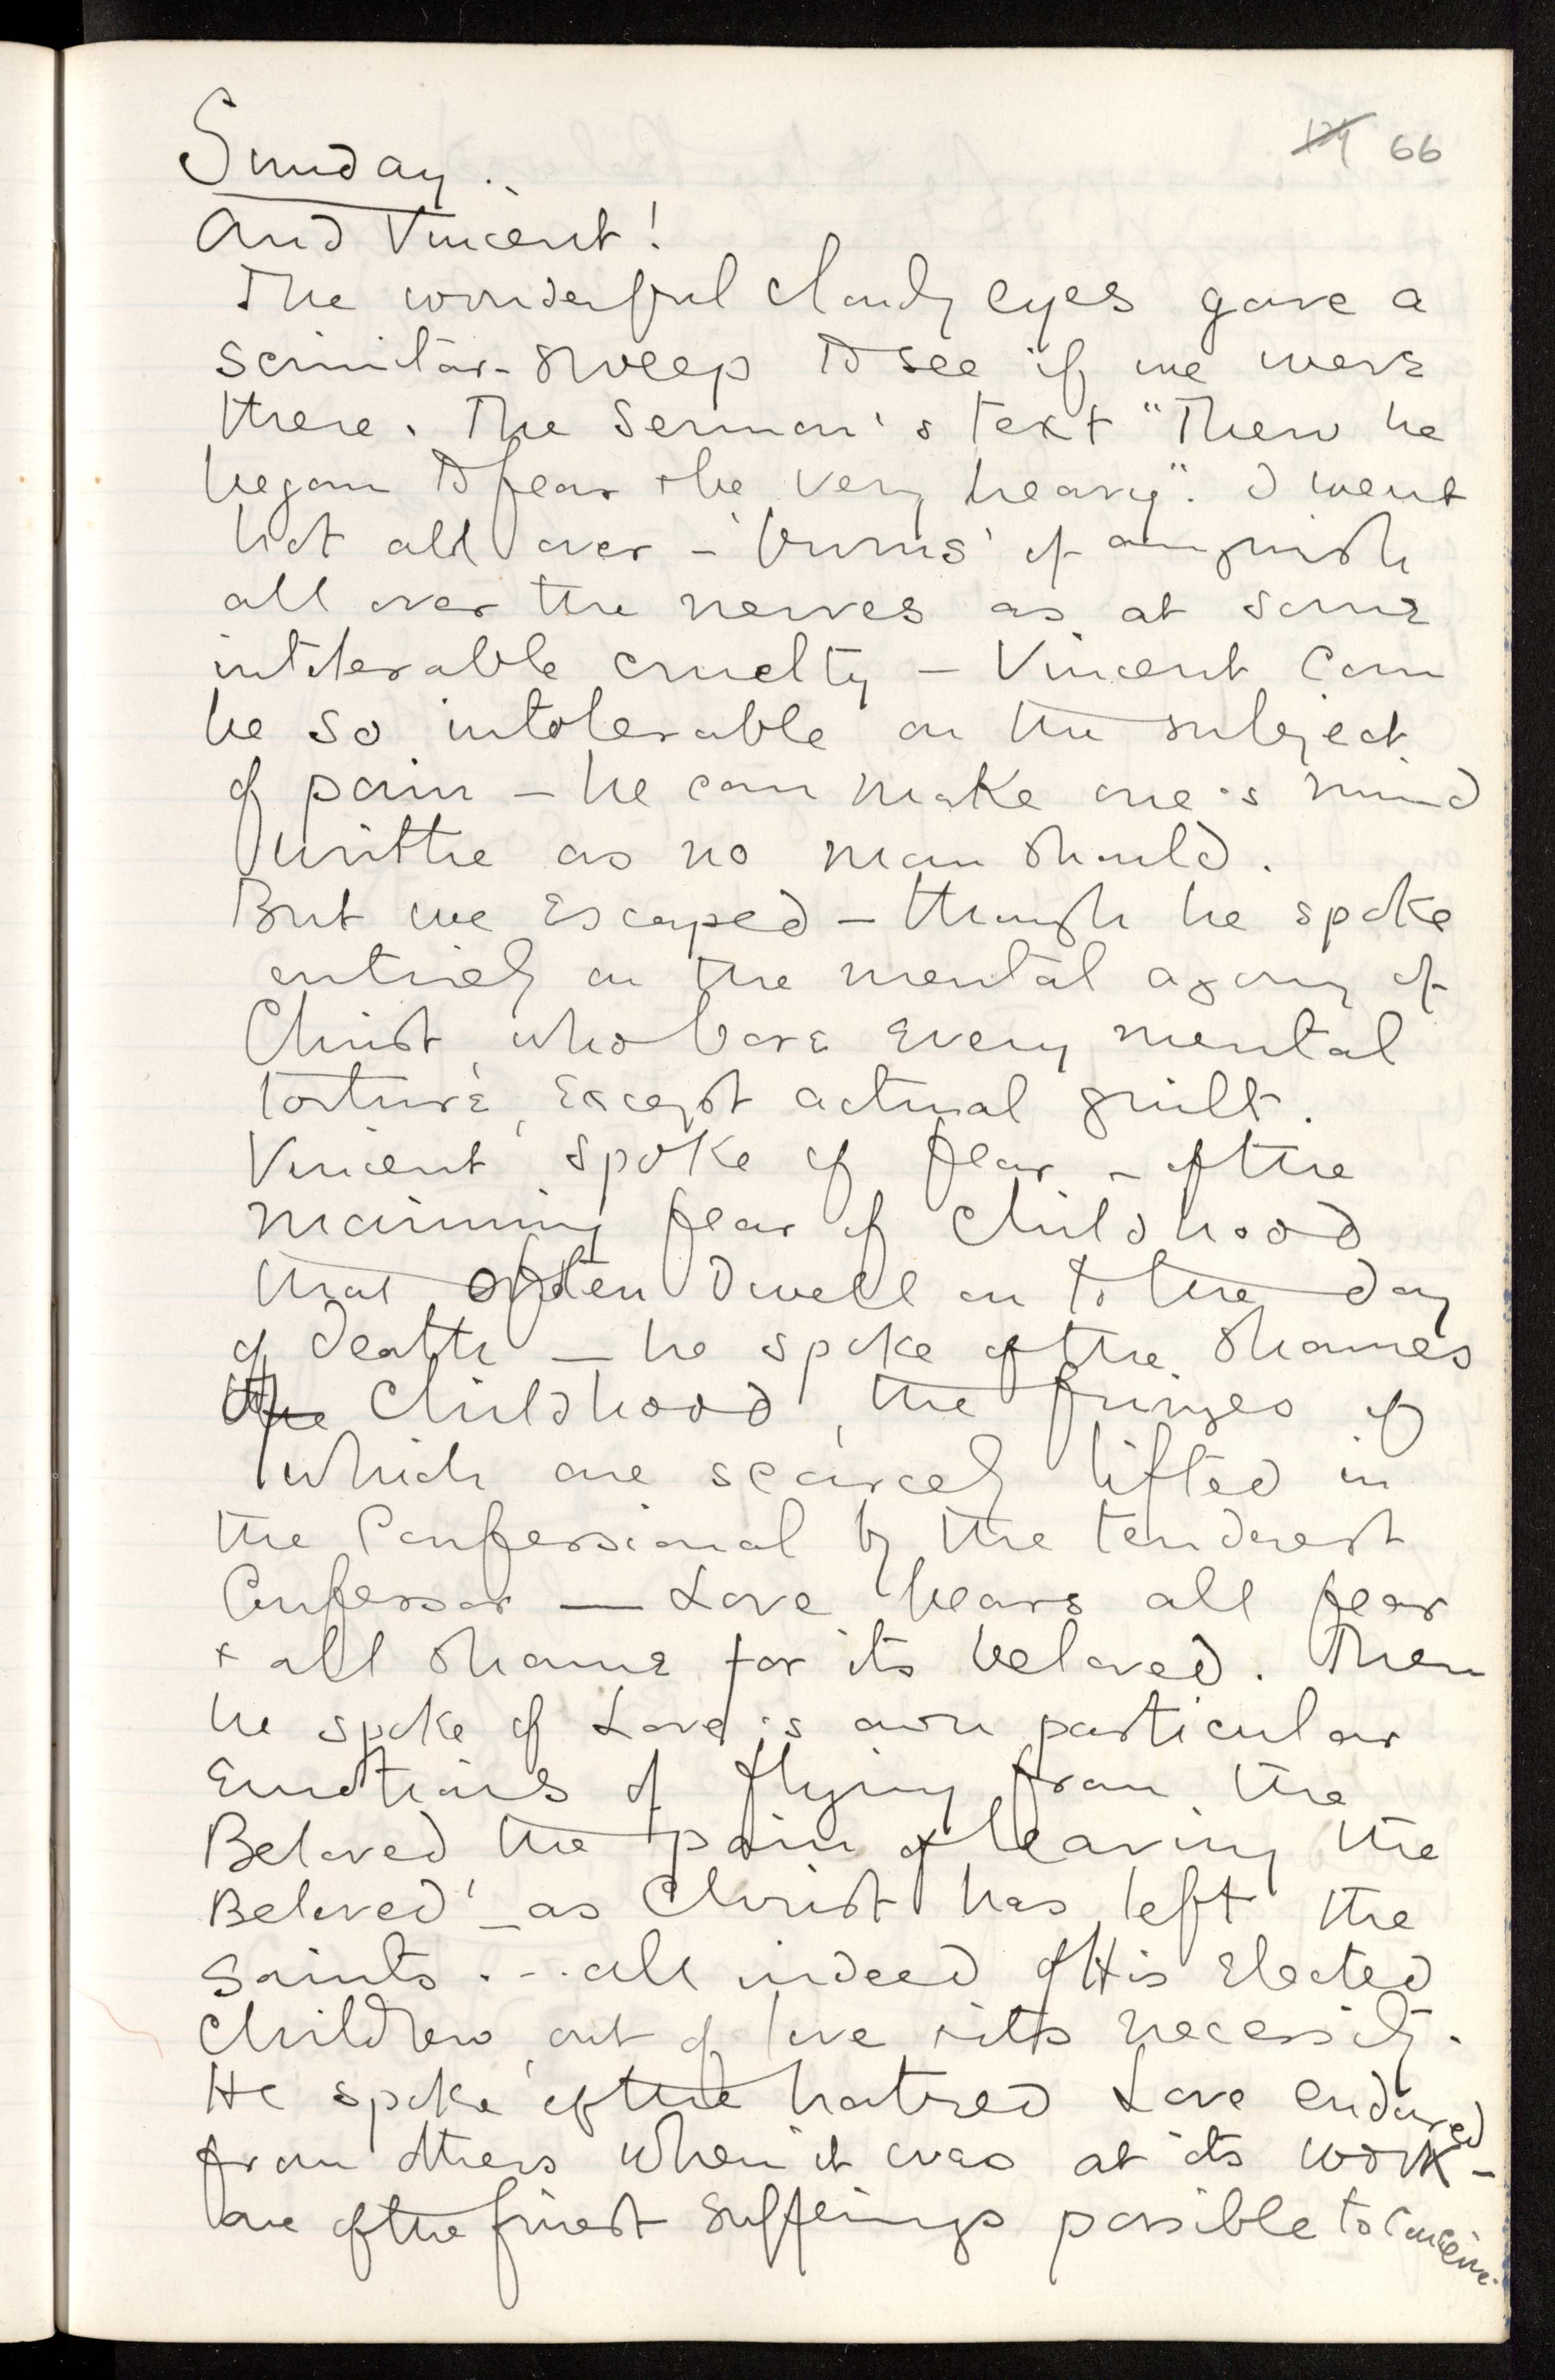 124 66
Sunday.
And Vincent!
The wonderful cloudy eyes gave a
scimitar-sweep to see if we were
there. The Sermon's text "Then he
began to fear & be very heavy". I went
hot all over - 'burns' of anguish
all over the nerves as at some
intolerable cruelty - Vincent can
be so intolerable on the subject
of pain - he can make one's mind
writhe as no man should.
But we escaped - though he spoke
entirely on the mental agony of
Christ, who bore every mental
torture, except actual guilt.
Vincent spoke of fear - of the
maiming fear of childhood
that often dwell on to the day
of death — he spoke of the shames
of childhood, the fringes of
which are scarcely lifted in
the Confessional by the tenderest
Confessor — Love bears all fear
& all shame for its beloved. Then
he spoke of Love's own particular
Emotions of flying from the
Beloved the 'pain of leaving the
Beloved' - as Christ has left the
Saints... all indeed of His Elected
Children, out of love & its necessity.
He spoke of the hatred Love endured
from others when it was at its work -
one of the finest sufferings possible to conceive.